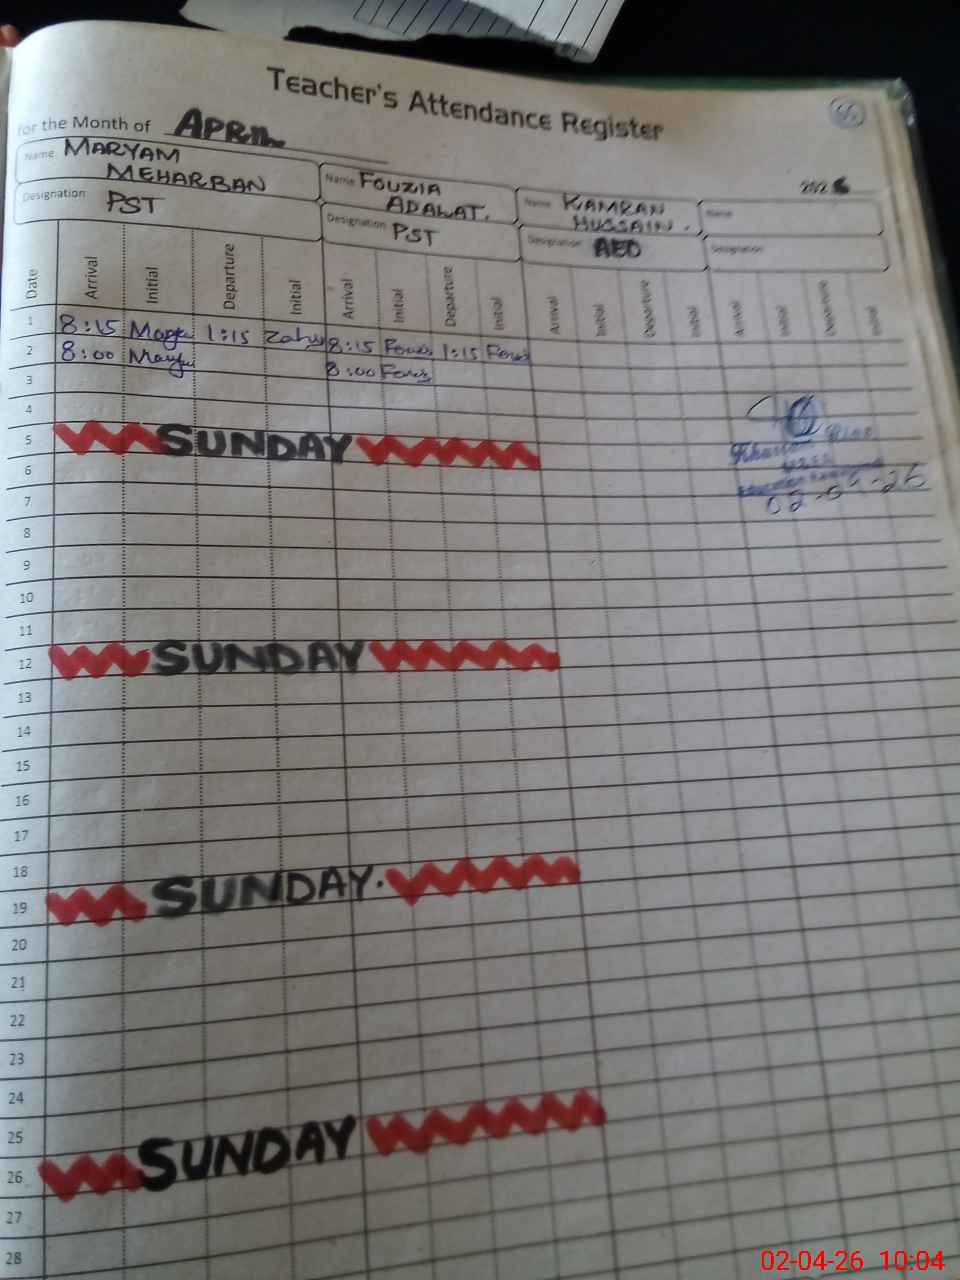 Teacher's Attendance Register
for the Month of APRIL
2026
Name MARYAM MEHARBAN
Name FOUZIA ADALAT.
Name KAMRAN HUSSAIN.
Name
Designation PST
Designation PST
Designation AEO
Designation
Date Arrival Initial Departure Initial Arrival Initial Departure Initial Arrival Initial Departure Initial Arrival Initial Departure Initial
1 8:15 1:15 8:15 1:15
2 8:00 8:00
3
4
5 SUNDAY
6
7
8
9
10
11
12 SUNDAY
13
14
15
16
17
18
19 SUNDAY.
20
21
22
23
24
25
26 SUNDAY
27
28
02-04-26
02-04-26 10:04